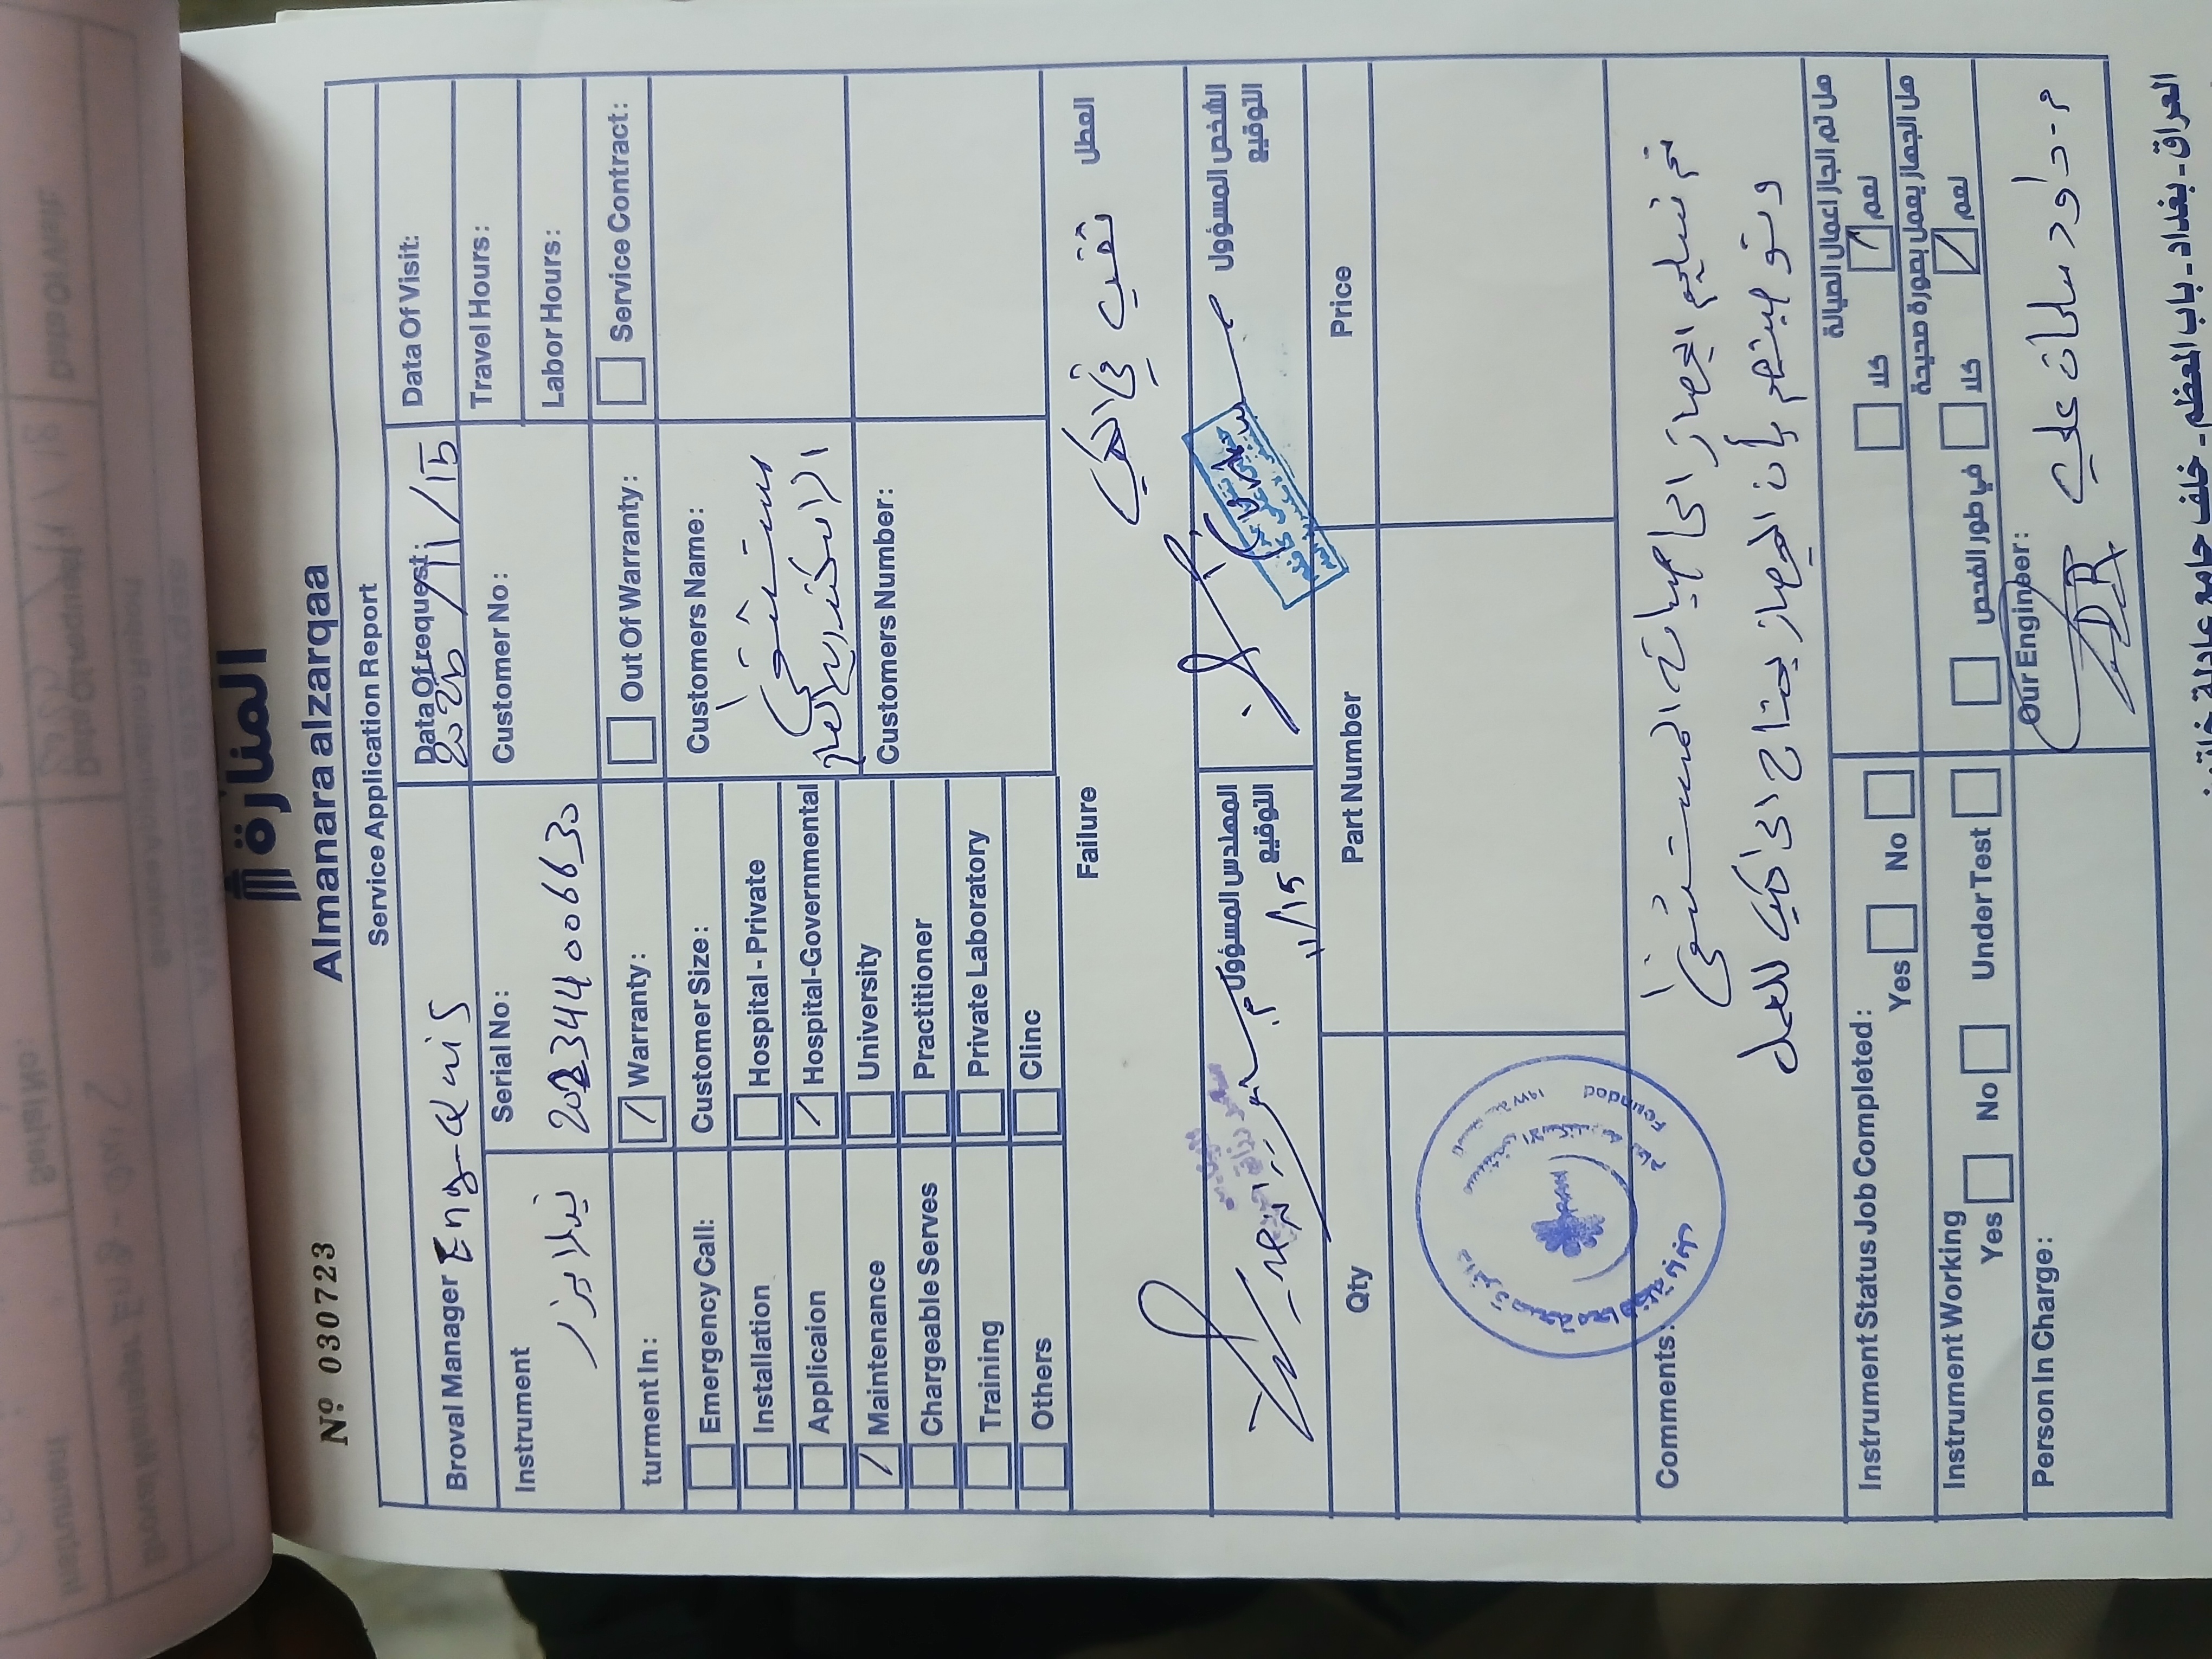 المنارة
Almanara alzarqaa
Nº 030723
Service Application Report
Broval Manager Eng-
Data Of request: 2025/11/15
Data Of Visit:
Instrument
Serial No:
Customer No:
Travel Hours:
Labor Hours:
turment In:
Warranty:
Out Of Warranty:
Service Contract:
Emergency Call:
Customer Size:
Customers Name:
مستشفى
Installation
Hospital - Private
Applicaion
Hospital-Governmental
Maintenance
University
Customers Number:
Chargeable Serves
Practitioner
Training
Private Laboratory
Others
Clinc
Failure
العطل
المهندس المسؤول
التوقيع
11/15
الشخص المسؤول
التوقيع
Qty
Part Number
Price
Founded
Comments:
تم تسليم الجهاز الى صيانة المستشفى
بأن الجهاز يحتاج الى للعمل
Instrument Status Job Completed:
Yes
No
هل تم انجاز اعمال الصيانة
كلا
نعم
Instrument Working
Yes
No
Under Test
هل الجهاز يعمل بصورة صحيحة
في طور الفحص
كلا
نعم
Person In Charge:
Our Enginber:
م. داود علي
العراق - بغداد - باب المعظم - خلف جامع عادلة خاتون